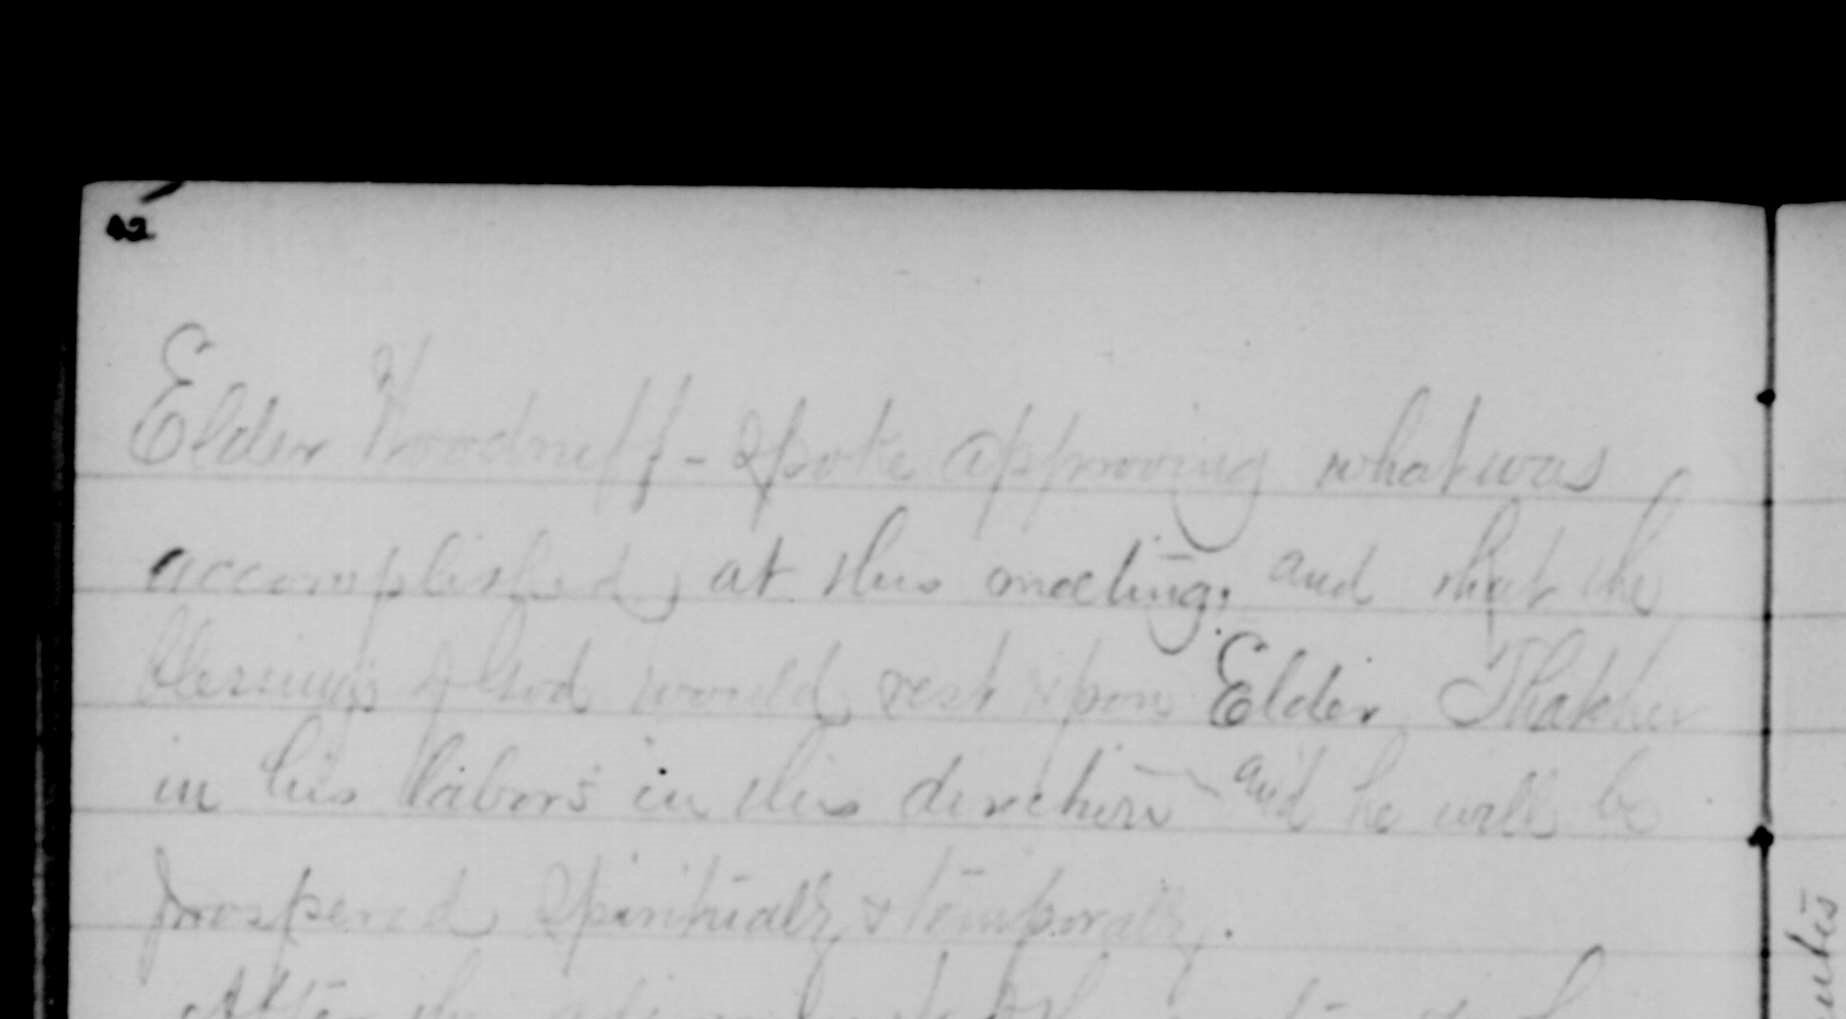 42
Elder Woodruff - Spoke approving what was
accomplished, at this meeting, and that the
blessings of God would rest upon Elder Thatcher
in his labors in this direction - and he will be
prospered Spiritually & temporally.
After the